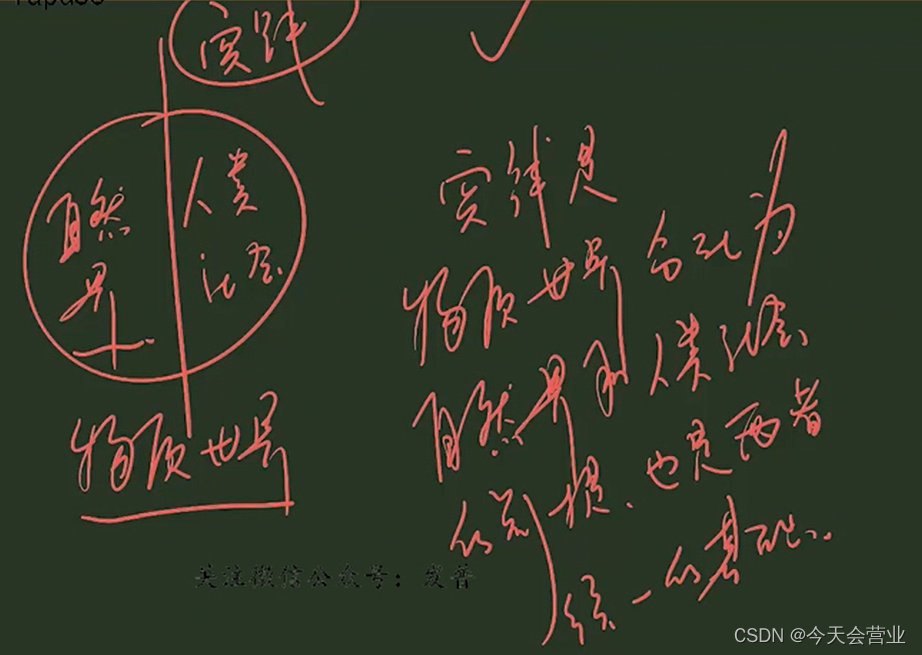 实践
自然
界
人类
社会
物质世界
实践是
物质世界分化为
自然界和人类社会
的前提、也是两者
统一的基础。
关注微信公众号：发普
CSDN @今天会营业